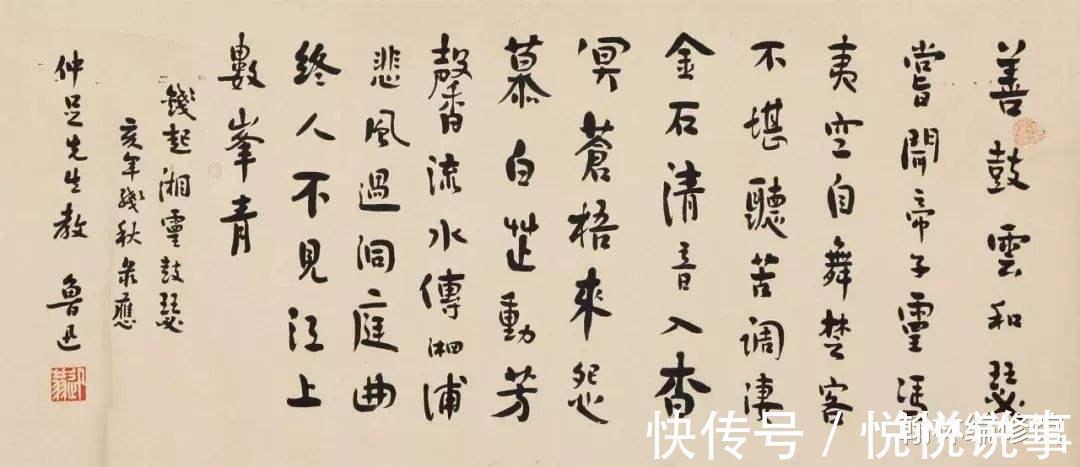 善鼓雲和瑟
嘗聞帝子靈馮
夷空自舞楚客
不堪聽苦調凄
金石清音入杳
冥蒼梧來怨
慕白芷動芳
馨流水傳湘浦
悲風過洞庭曲
終人不見江上
數峯青
錢起湘靈鼓瑟
亥年殘秋录應
仲足先生教 魯迅
快传号 / 悦悦说事